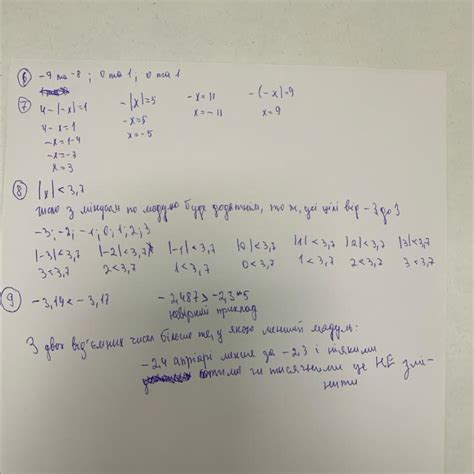 6 -9 та -8; 0 та 1, 0 та 1
7 4-|-x|=1 -|x|=5 -x=11 -(-x)=9
4-x=1 -x=5 x=-11 x=9
-x=1-4 x=-5
-x=-3
x=3
8 |x|<3,7
число з мінусом по модулю буде додатнім, то ж, усі цілі від -3 до 3
-3;-2;-1;0;1;2;3
|-3|<3,7 |-2|<3,7 |-1|<3,7 |0|<3,7 |1|<3,7 |2|<3,7 |3|<3,7
3<3,7 2<3,7 1<3,7 0<3,7 1<3,7 2<3,7 3<3,7
9 -3,14<-3,17 -2,487>-2,3*5
невірний приклад
З двох від'ємних чисел більше те, у якого менший модуль:
-2,4 апріорі менше за -2,3 і ніякими
сотими чи тисячними це НЕ змі-
нити